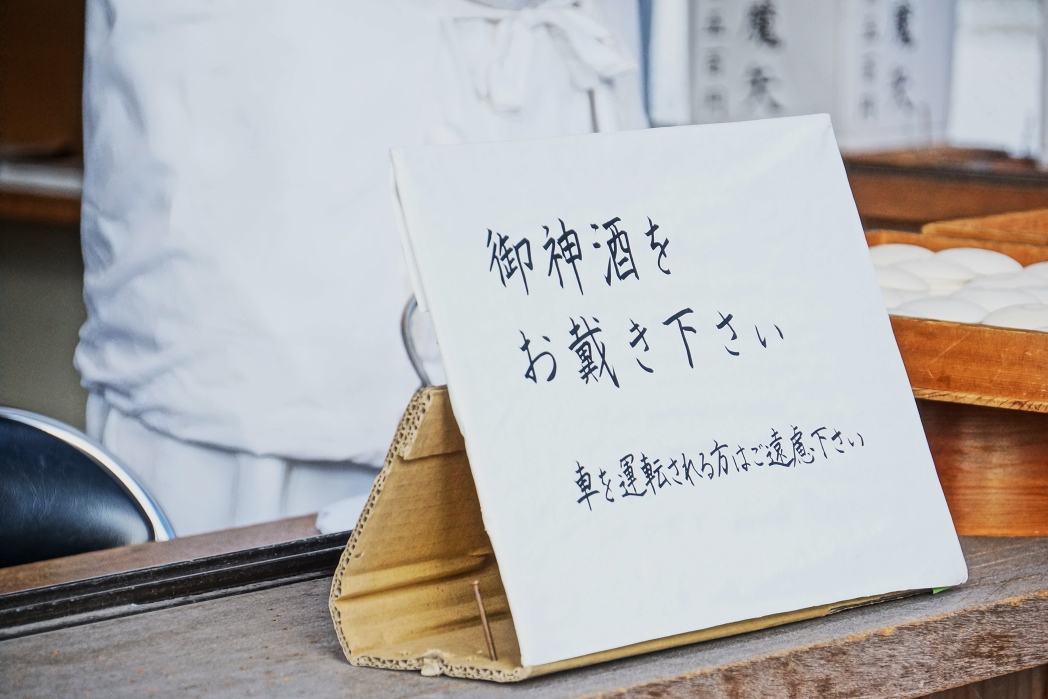 御神酒を
お戴き下さい
車を運転される方はご遠慮下さい